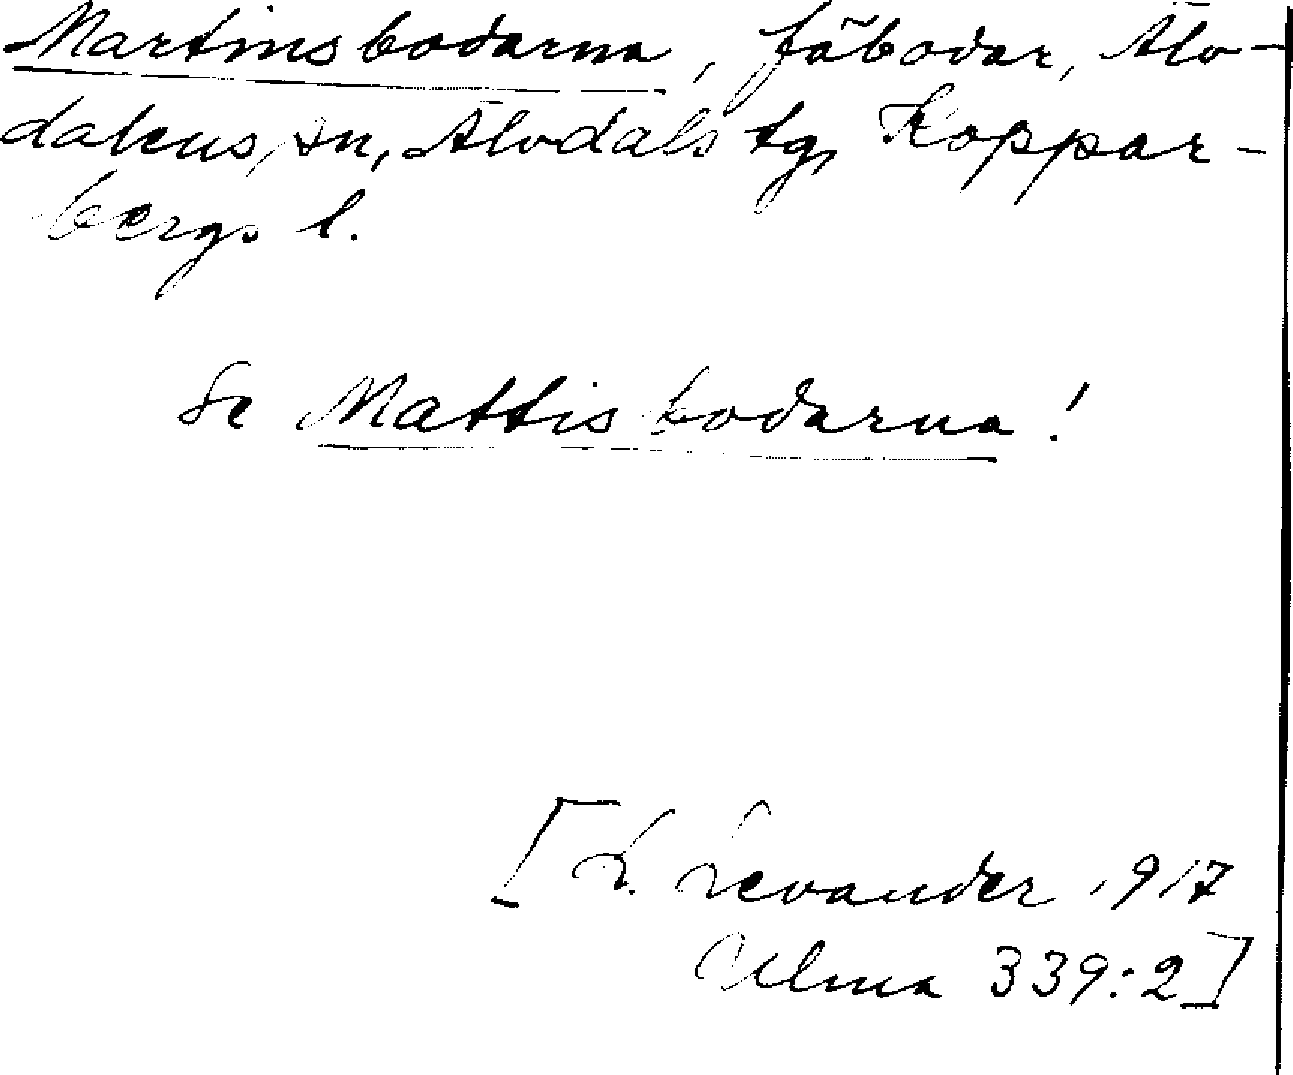 Martinsbodarna, fäbodar, Älv-
dalens sn, Älvdals tg, Koppar-
bergs l.
Se Mattisbodarna!
[L. Levander 1917
Ulma 339:2]